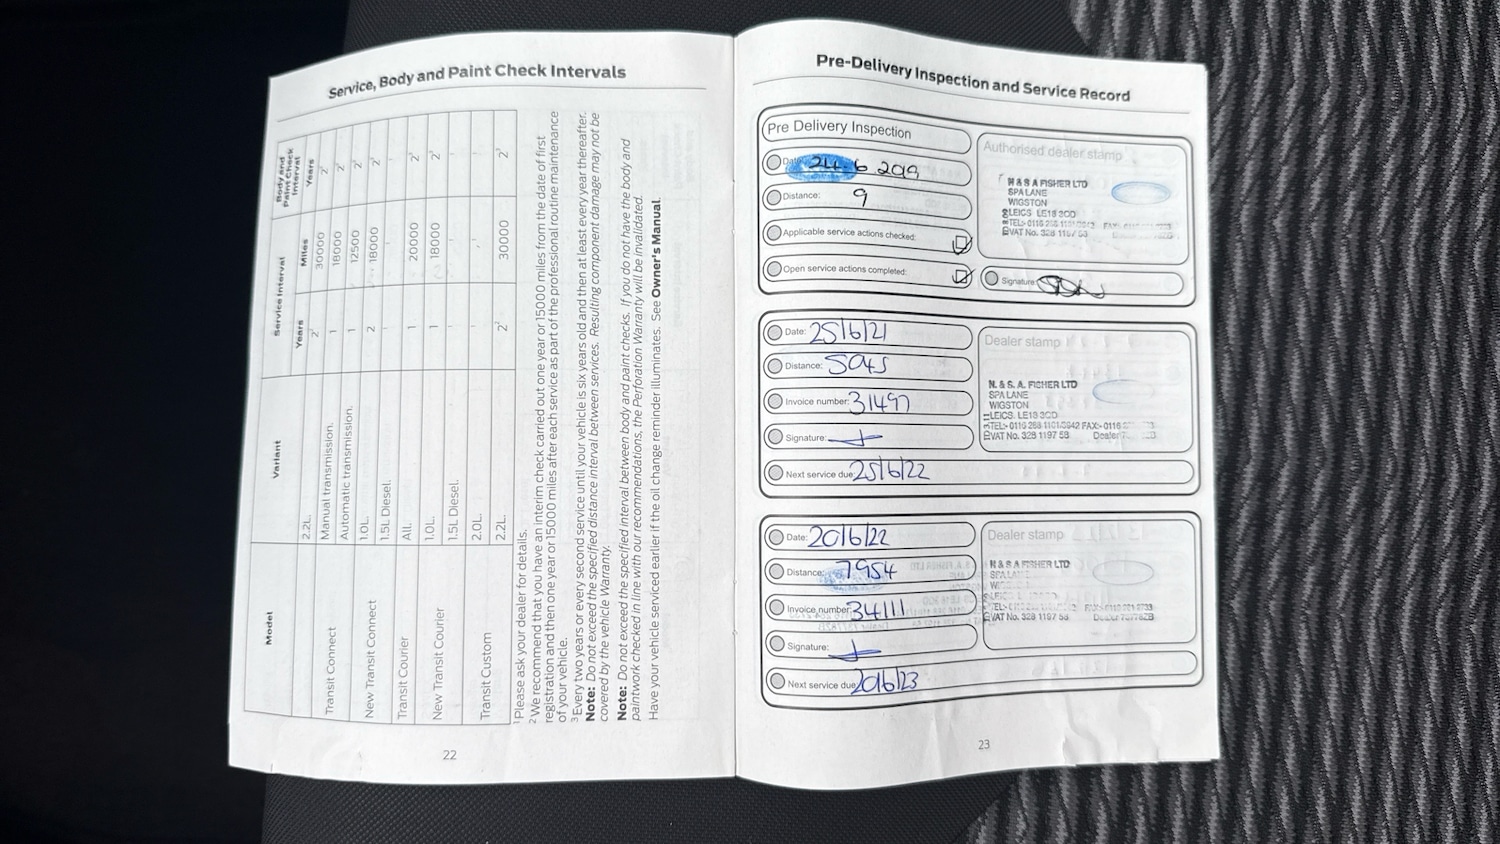 Service, Body and Paint Check Intervals
Model Variant Service Interval Body and Paint Check Interval
Years Miles Years
2.2L. 2² 30000 2²
Transit Connect Manual transmission. 1 18000 2²
Automatic transmission. 1 12500 2²
New Transit Connect 1.0L. 2 18000 2²
1.5L Diesel.
Transit Courier All. 1 20000 2²
New Transit Courier 1.0L. 1 18000 2²
1.5L Diesel.
Transit Custom 2.0L.
2.2L. 2² 30000 2²
¹ Please ask your dealer for details.
² We recommend that you have an interim check carried out one year or 15000 miles from the date of first
registration and then one year or 15000 miles after each service as part of the professional routine maintenance
of your vehicle.
³ Every two years or every second service until your vehicle is six years old and then at least every year thereafter.
Note: Do not exceed the specified distance interval between services. Resulting component damage may not be
covered by the vehicle Warranty.
Note: Do not exceed the specified interval between body and paint checks. If you do not have the body and
paintwork checked in line with our recommendations, the Perforation Warranty will be invalidated.
Have your vehicle serviced earlier if the oil change reminder illuminates. See Owner's Manual.
22
Pre-Delivery Inspection and Service Record
Pre Delivery Inspection
Date: 24.6 2019
Distance: 9
Applicable service actions checked:
Open service actions completed:
Authorised dealer stamp
N & S A FISHER LTD
SPA LANE
WIGSTON
LEICS LE18 3QD
TEL:- 0116
VAT No. 328 1197 58
Signature:
Date: 25/6/21
Distance: 5045
Invoice number: 31497
Signature:
Next service due: 25/6/22
Dealer stamp
N. & S. A. FISHER LTD
SPA LANE
WIGSTON
LEICS. LE18 3QD
TEL:- 0116 288 1101/0842 FAX:- 0116
VAT No. 328 1197 58 Dealer
Date: 20/6/22
Distance: 7954
Invoice number: 34111
Signature:
Next service due: 20/6/23
Dealer stamp
N & S A FISHER LTD
SPA LANE
VAT No. 328 1197 58
23